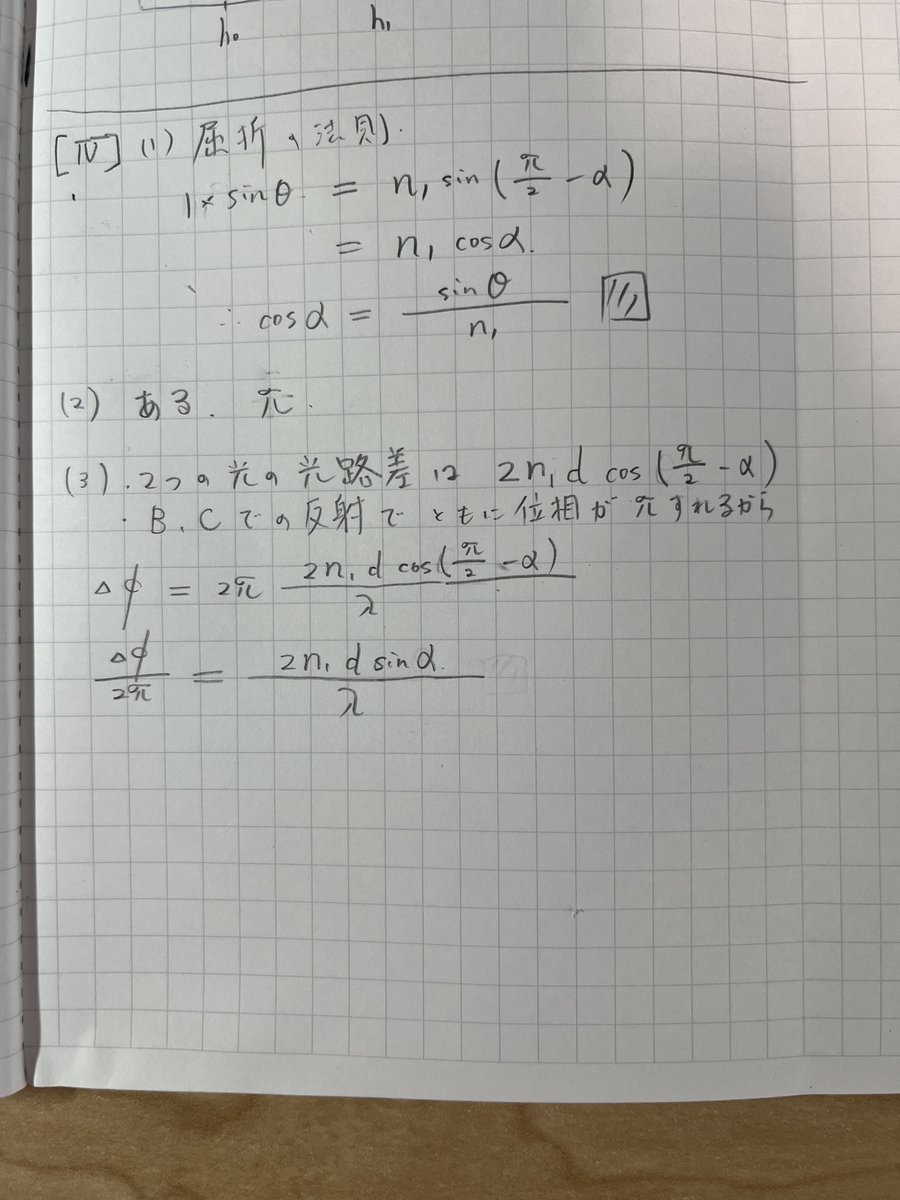 h₀ h₁
[Ⅳ] (1) 屈折の法則.
1×sinθ = n₁ sin(π/2 - α)
= n₁ cosα.
∴ cosα = sinθ/n₁
(2) ある. π.
(3). 2つの光の光路差は 2n₁d cos(π/2 - α)
・B, Cでの反射でともに位相がπずれるから
Δφ = 2π 2n₁d cos(π/2 - α)/λ
Δφ/2π = 2n₁d sinα/λ